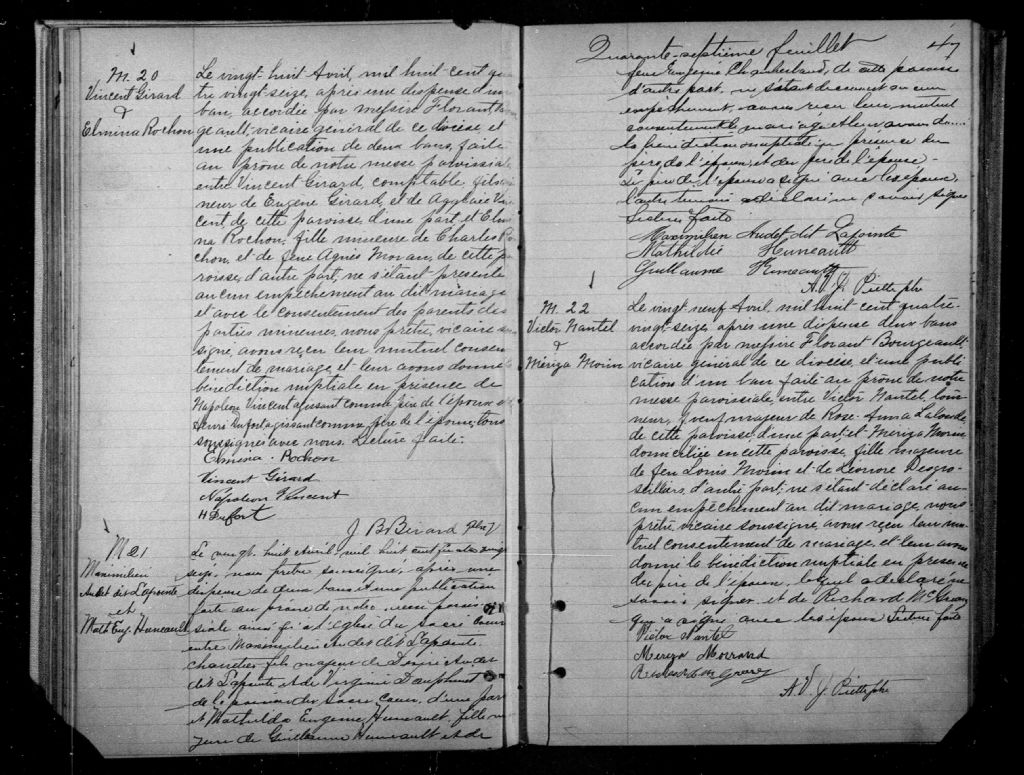 M. 20
Vincent Girard
&
Elmina Rochon
Le vingt-huit Avril, mil huit-cent qua
tre vingt-seize, après une dispense d'un
ban, accordée par messire Florent
geault, vicaire général de ce diocèse, et
une publication de deux bans, faite
au prône de notre messe paroissiale
entre Vincent Girard, comptable, fils
neur de Eugène Girard, et de Agglaée Vin
cent, de cette paroisse, d'une part, et Elmi
na Rochon, fille mineure de Charles Ro
chon, et de feue Agnès Moran, de cette p
roisse, d'autre part, ne s'étant présenté
aucun empêchement au dit mariage
et avec le consentement des parents des
parties mineures, nous prêtre, vicaire sou
signé, avons reçu leur mutuel consen
tement de mariage, et leur avons donné
bénédiction nuptiale en présence de
Napoléon Vincent agissant comme père de l'époux et
Henri Dufort agissant comme père de l'épouse, tous
soussignés avec nous. Lecture faite.
Elmina Rochon
Vincent Girard
Napoléon Vincent
H Dufort
J B Bérard Ptre
M 21
Maximilien
Audet dit Lapointe
et
Math Eug. Huneault
Le vingt huit Avril, mil huit cent quatre vingt
seize, nous prêtre soussigné, après une
dispense de deux bans et une publication
faite au prône de notre messe parois
siale ainsi qu'à l'Eglise du Sacré Coeur
entre Maximilien Audet dit Lapointe
charretier fils majeur de Audet
dit Lapointe et de Virginie Dauphin
de la paroisse du Sacré Coeur, d'une part
et Mathilde Eugénie Huneault, fille mi
neure de Guillaume Huneault et de
Quarante-septième feuillet
47
feue Eugénie Chamberland, de cette paroisse
d'autre part, ne s'étant découvert aucun
empêchement, avons reçu leur mutuel
consentement de mariage et leur avons donné
la bénédiction nuptiale en présence du
père de l'époux et du père de l'épouse.
Le père de l'épouse a signé avec les époux,
l'autre témoin a déclaré ne savoir signer
Lecture faite
Maximilien Audet dit Lapointe
Mathildie Huneault
Guillaume Huneault
A. V. J. Piette ptre
M. 22
Victor Nantel
&
Mériza Morin
Le vingt-neuf Avril, mil huit cent quatre
vingt-seize, après une dispense deux bans
accordée par messire Florent Bourgeault
vicaire général de ce diocèse et une publi
cation d'un ban faite au prône de notre
messe paroissiale, entre Victor Nantel, tour
neur, veuf majeur de Rose-Anna Lalonde,
de cette paroisse, d'une part, et Mériza Morin
domiciliée en cette paroisse, fille majeure
de feu Louis Morin et de Léonore Desgro
seilliers, d'autre part; ne s'étant déclaré au
cun empêchement au dit mariage, nous
prêtre, vicaire soussigné, avons reçu leur mu
tuel consentement de mariage, et leur avons
donné la bénédiction nuptiale en présence
du père de l'époux, lequel a déclaré ne
savoir signer et de Richard
qui a signé avec les époux Lecture faite
Victor Nantel
Meriza
A. V. J. Piette ptre